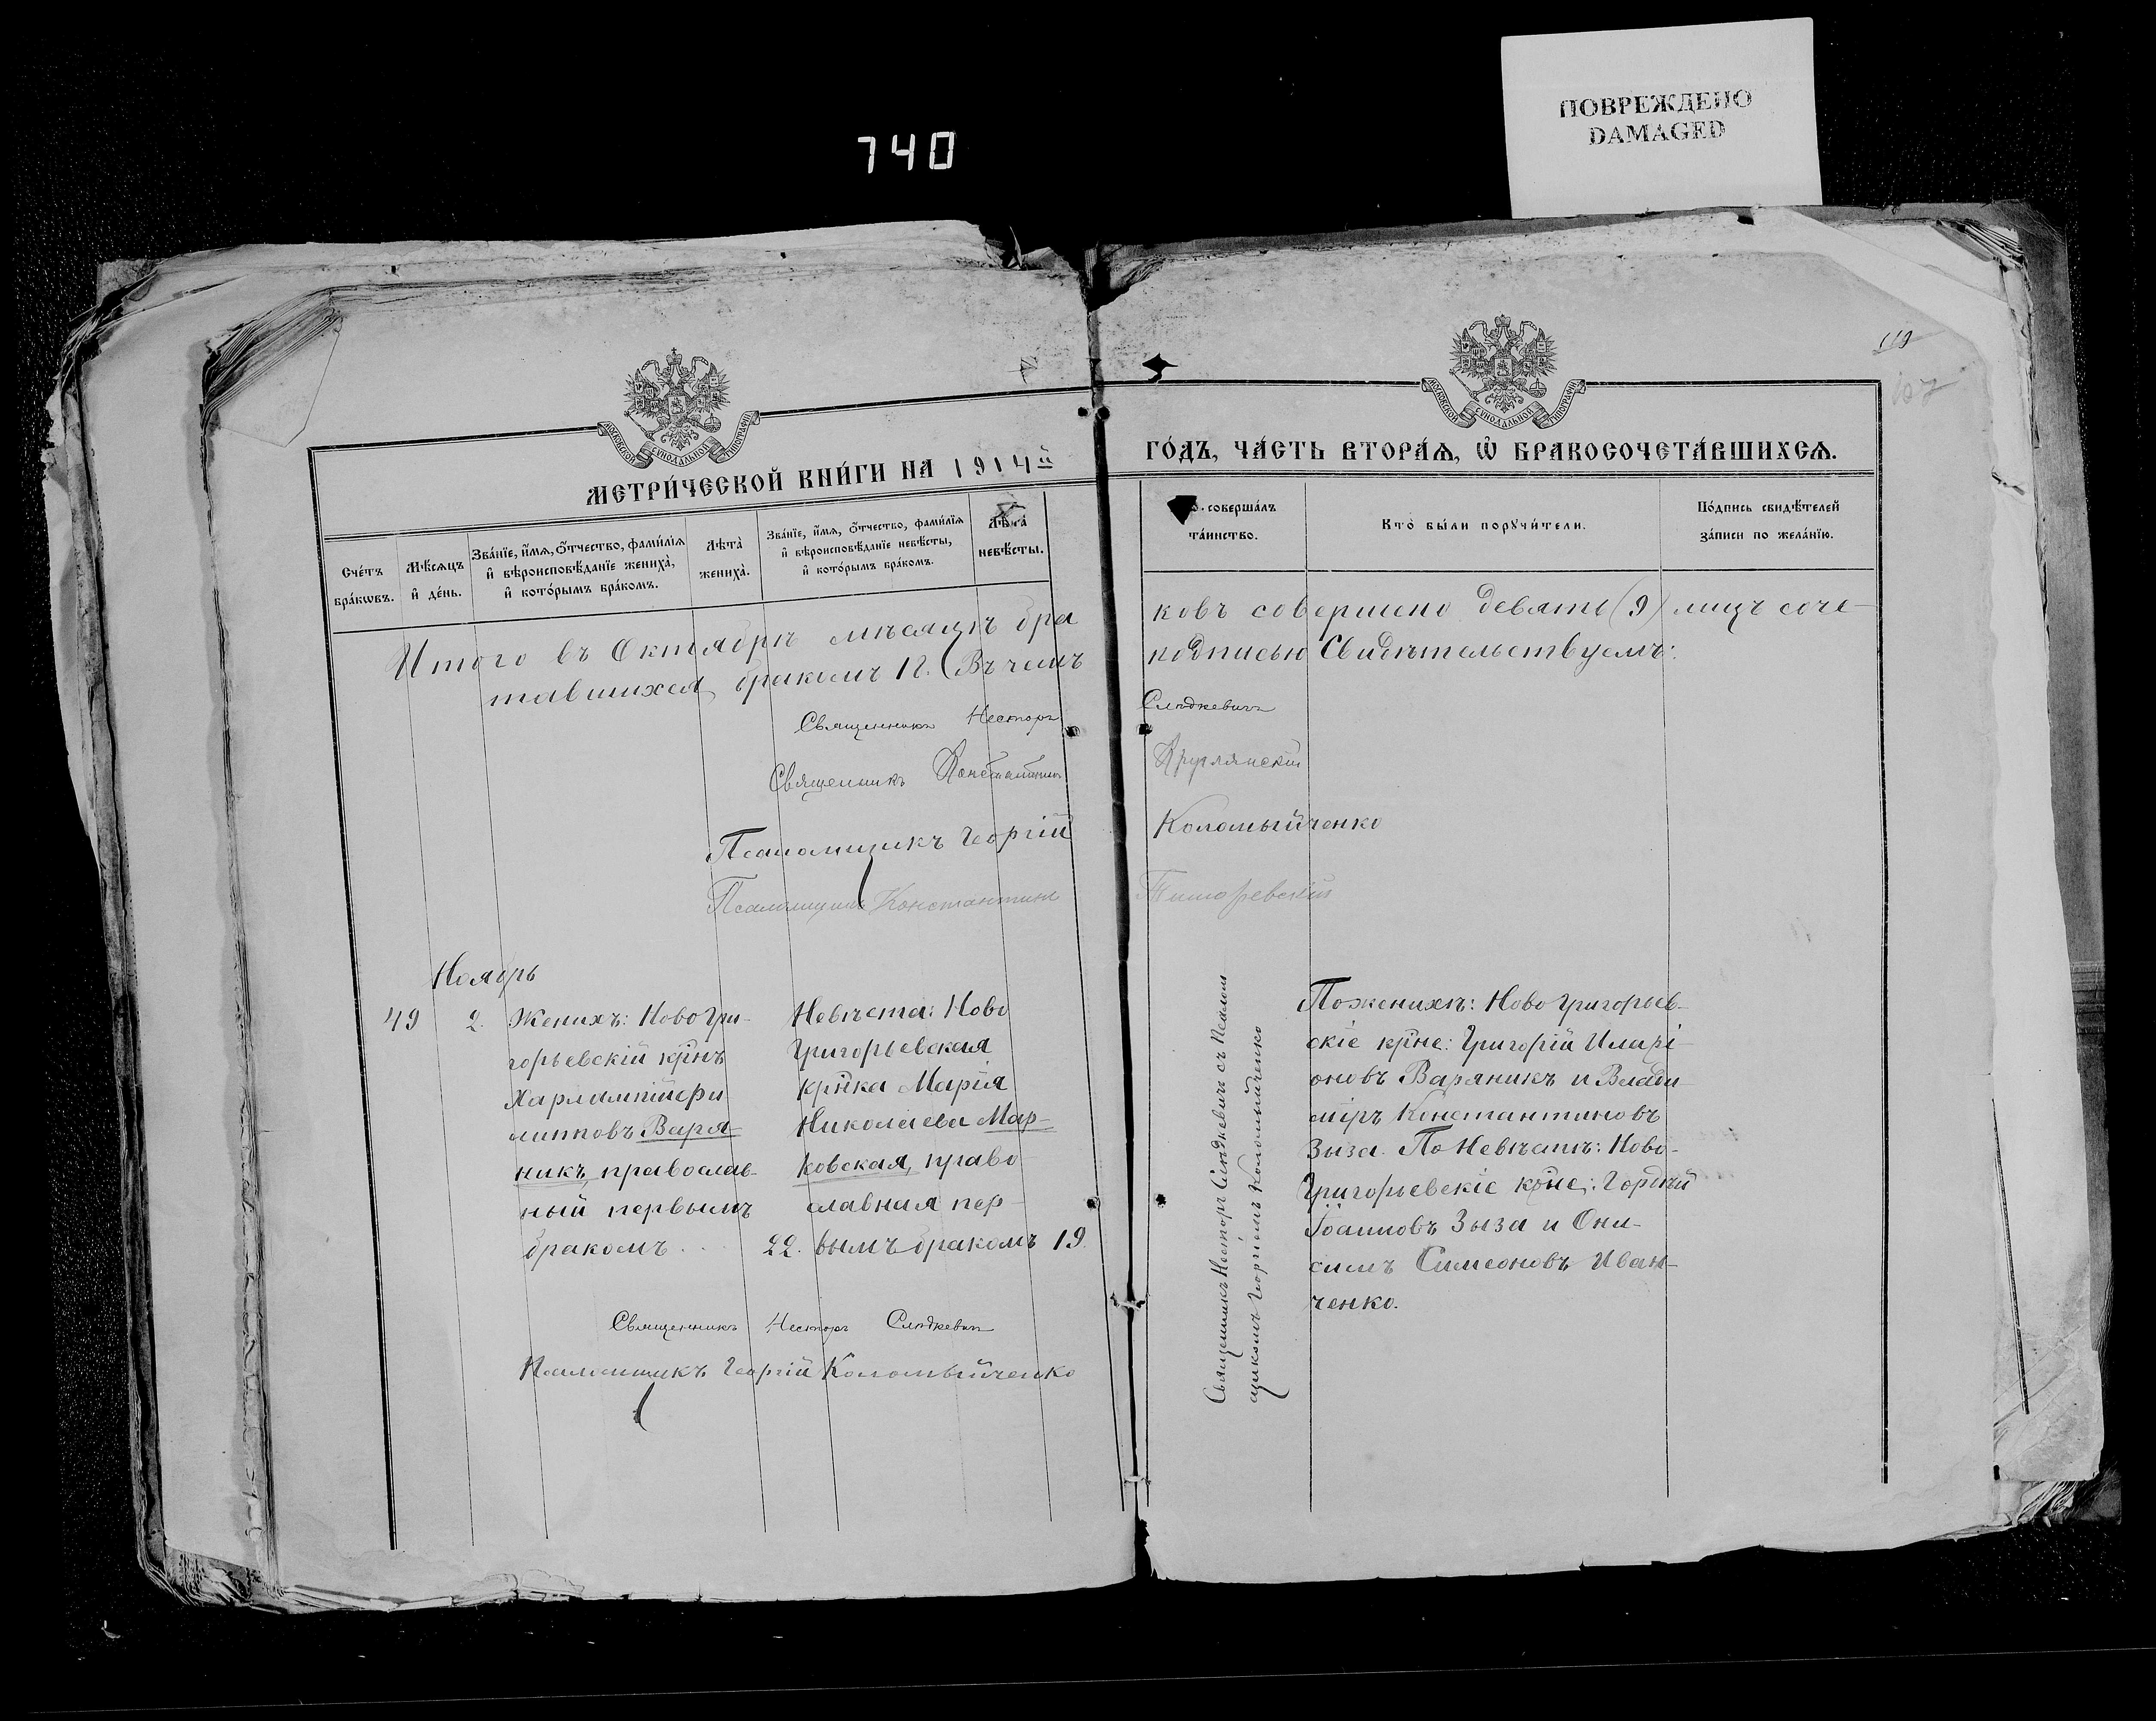 740
ПОВРЕЖДЕНО
DAMAGED
МОСКОВСКОЙ СѴНОДАЛЬНОЙ ТИПОГРАФІИ
МЕТРИ́ЧЕСКОЙ КНИ́ГИ НА 1914й
Сче́тъ бра́кѡвъ.
Мѣ́сѧцъ и҆ де́нь.
Зва́нїе, и҆́мѧ, ѻ҆́тчество, фами́лїѧ и҆ вѣроисповѣ́данїе жениха̀, и҆ кото́рымъ бра́комъ.
Лѣта̀ жениха̀.
Зва́нїе, и҆́мѧ, ѻ҆́тчество, фами́лїѧ и҆ вѣроисповѣ́данїе невѣ́сты, и҆ кото́рымъ бра́комъ.
Лѣта̀ невѣ́сты.
Итого въ Октябрѣ мѣсяцѣ бра
тавшихся бракомъ 12. (Въ чемъ
Священникъ Несторъ
Священникъ Константинъ
Псаломщикъ Георгій
Псаломщикъ Константинъ
Ноябрь
49
2.
Женихъ: НовоГри-
горьевскій кр̃нъ
Харлампій Фи
липповъ Варя-
никъ, православ-
ный первымъ
бракомъ
22.
Невѣста: Ново
Григорьевская
кр̃нка Марія
Николаева Мар-
ковская, право
славная пер-
вымъ бракомъ
19.
Священникъ Несторъ Слѣдкевичъ
Псаломщикъ Георгій Коломыйченко
МОСКОВСКОЙ СѴНОДАЛЬНОЙ ТИПОГРАФІИ
107
ГО́ДЪ, ЧА́СТЬ ВТОРА́Ѧ, Ѡ҆ БРАКОСОЧЕТА́ВШИХСѦ.
соверша́лъ та́инство.
Кто̀ бы́ли порꙋчи́тели.
По́дпись свидѣ́телей за́писи по жела́нїю.
ковъ совершено девять (9) лицъ соче-
подписью Свидѣтельствуемъ:
Слѣдкевичъ
Круглянскій
Коломыйченко
Священникъ Несторъ Слѣдкевичъ съ Псалом
щикомъ Георгіемъ Коломыйченко
По женихѣ: НовоГригорьев-
скіе кр̃не: Григорій Иларі
оновъ Варяникъ и Влади
міръ Константиновъ
Зыза. По Невѣстѣ: Ново-
Григорьевскіе кр̃не: Гордѣй
Іоанновъ Зыза и Они-
симъ Симеоновъ Иван-
ченко.